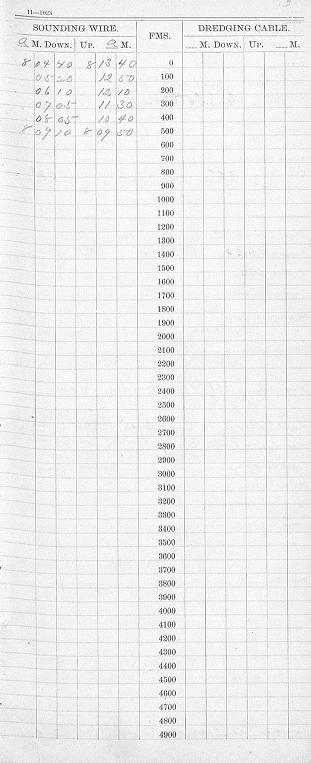 11—1023
SOUNDING WIRE. FMS. DREDGING CABLE.
a M. DOWN. UP. a M. ___ M. DOWN. UP. ___ M.
8 04 40 8 13 40 0
05 20 12 50 100
06 10 12 10 200
07 05 11 30 300
08 05 10 40 400
8 09 10 8 09 50 500
600
700
800
900
1000
1100
1200
1300
1400
1500
1600
1700
1800
1900
2000
2100
2200
2300
2400
2500
2600
2700
2800
2900
3000
3100
3200
3300
3400
3500
3600
3700
3800
3900
4000
4100
4200
4300
4400
4500
4600
4700
4800
4900